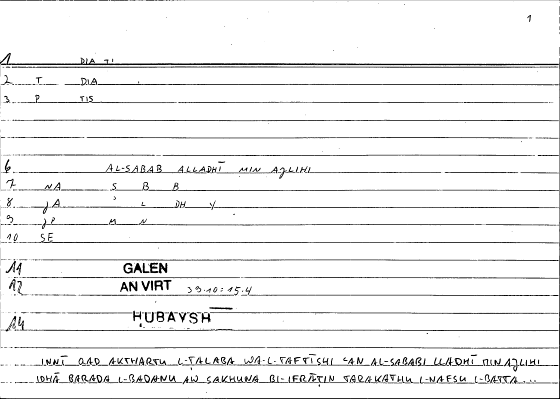 1
1 DIA TI
2 T DIA
3 P TIS
6 AL-SABAB ALLADHĪ MIN AJLIHI
7 NA S B B
8 JA ʾ L DH Y
9 JP M N
10 SE
11 GALEN
12 AN VIRT 39.10:15.4
14 ḤUBAYSH
INNĪ QAD AKTHARTU L-ṬALABA WA-L-TAFTĪSHI ʿAN AL-SABABI LLADHĪ MIN AJLIHI
IDHĀ BARADA L-BADANU AW SAKHUNA BI-IFRĀṬIN TARAKATHU L-NAFSU L-BATTA...